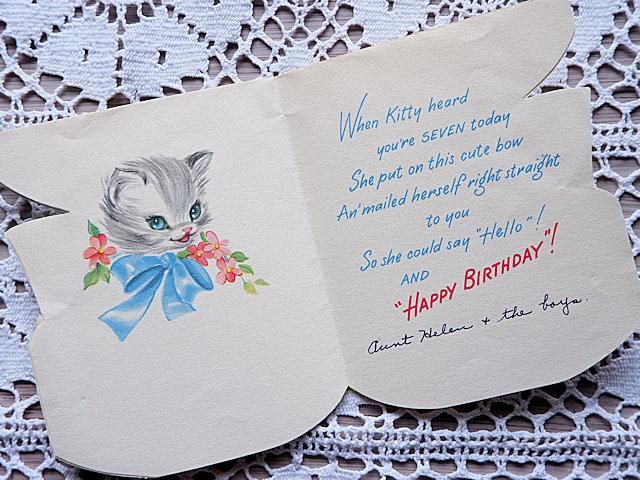 When Kitty heard
you're SEVEN today
She put on this cute bow
An' mailed herself right straight
to you
So she could say "Hello"!
AND
"HAPPY BIRTHDAY"!
Aunt Helen + the boys.